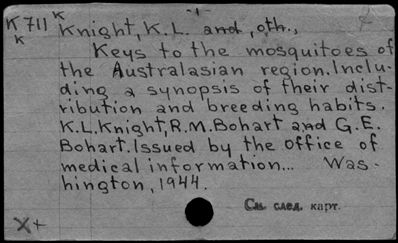 K711 K Knight, K.L. and, oth.,
K
Keys to the mosquitoes of
the Australasian region. Inclu-
ding a synopsis of their dist-
ribution and breeding habits.
K.L. Knight, R.M. Bohart and G.E.
Bohart. Issued by the office of
medical information... Was-
hington, 1944.
См. след. карт.
X+